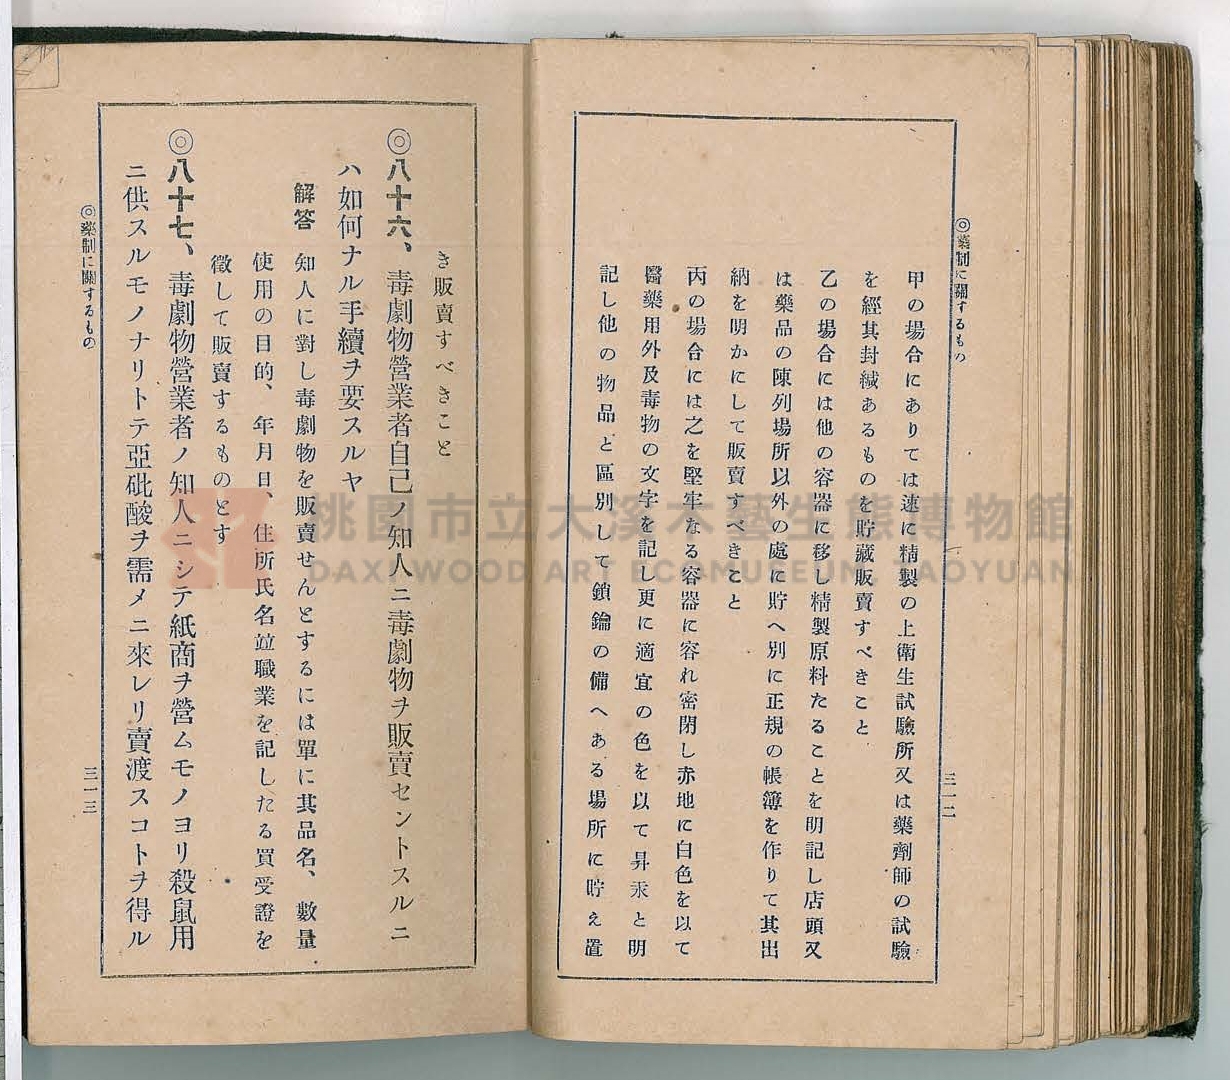 ◎藥制に關するもの
三一二
甲の場合にありては速に精製の上衛生試驗所又は藥劑師の試驗
を經其封緘あるものを貯藏販賣すべきこと
乙の場合には他の容器に移し精製原料たることを明記し店頭又
は藥品の陳列場所以外の處に貯へ別に正規の帳簿を作りて其出
納を明かにして販賣すべきこと
丙の場合には之を堅牢なる容器に容れ密閉し赤地に白色を以て
醫藥用外及毒物の文字を記し更に適宜の色を以て昇汞と明
記し他の物品と區別して鎖鑰の備へある場所に貯え置
き販賣すべきこと
◎八十六、毒劇物營業者自己ノ知人ニ毒劇物ヲ販賣セントスルニ
ハ如何ナル手續ヲ要スルヤ
解答 知人に對し毒劇物を販賣せんとするには單に其品名、數量
使用の目的、年月日、住所氏名竝職業を記したる買受證を
徵して販賣するものとす
◎八十七、毒劇物營業者ノ知人ニシテ紙商ヲ營ムモノヨリ殺鼠用
ニ供スルモノナリトテ亞砒酸ヲ需メニ來レリ賣渡スコトヲ得ル
◎藥制に關するもの
三一三
桃園市立大溪木藝生態博物館
DAXI WOOD ART ECOMUSEUM, TAOYUAN